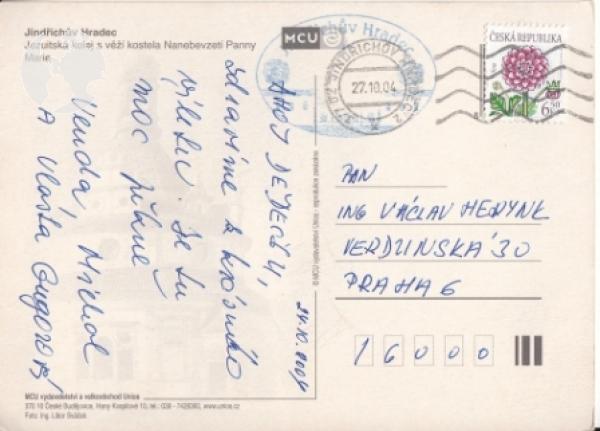 Jindřichův Hradec
Jezuitská kolej s věží kostela Nanebevzetí Panny
Marie
MCU
Jindřichův Hradec
JINDŘICHŮV HRADEC 2
27.10.04
377 02
ČESKÁ REPUBLIKA
6,50
AHOJ DĚDEČKU,
ZDRAVÍME Z KRÁSNÉHO
VÝLETU. JE TU
MOC PĚKNĚ
VENDA MICHAL
A VLASTA
24.10.2004
© MCU vydavatelství Unios - reprodukce zakázána
PAN
ING VÁCLAV HERYNK
VERDUNSKÁ 30
PRAHA 6
16000
MCU vydavatelství a velkoobchod Unios
370 10 České Budějovice, Hany Kvapilové 10, tel.: 038 - 7428360, www.unios.cz
Foto: Ing. Libor Sváček